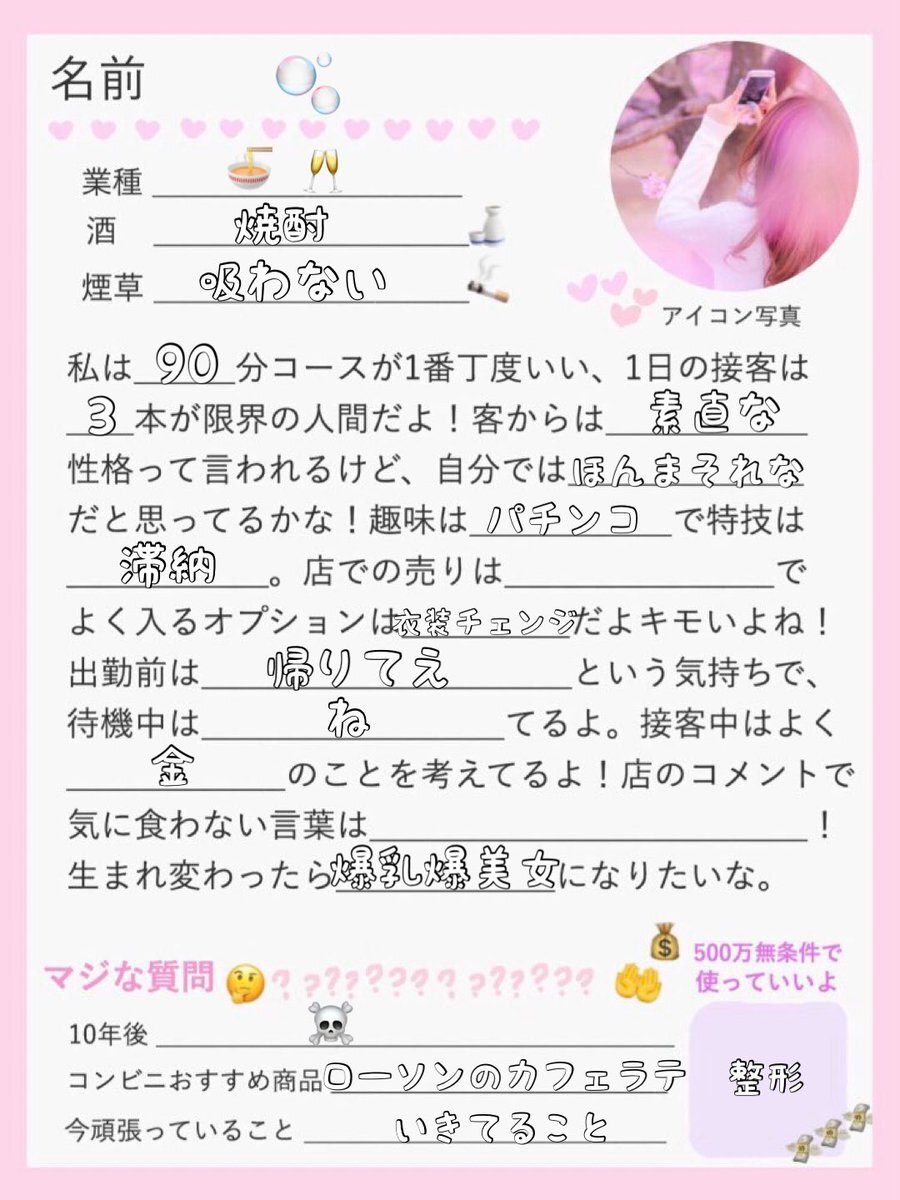 名前 🫧
業種 🍜 🥂
酒 焼酎 🍶
煙草 吸わない 🚬
アイコン写真
私は 90 分コースが1番丁度いい、1日の接客は
3 本が限界の人間だよ！客からは 素直な
性格って言われるけど、自分では ほんまそれな
だと思ってるかな！趣味は パチンコ で特技は
滞納 。店での売りは＿＿＿で
よく入るオプションは 衣装チェンジ だよキモいよね！
出勤前は 帰りてえ という気持ちで、
待機中は ね てるよ。接客中はよく
金 のことを考えてるよ！店のコメントで
気に食わない言葉は＿＿＿！
生まれ変わったら 爆乳爆美女 になりたいな。
マジな質問 🤔?????????????????
💰 500万無条件で
🤲 使っていいよ
10年後 ☠️
コンビニおすすめ商品 ローソンのカフェラテ
整形
今頑張っていること いきてること
💸💸💸